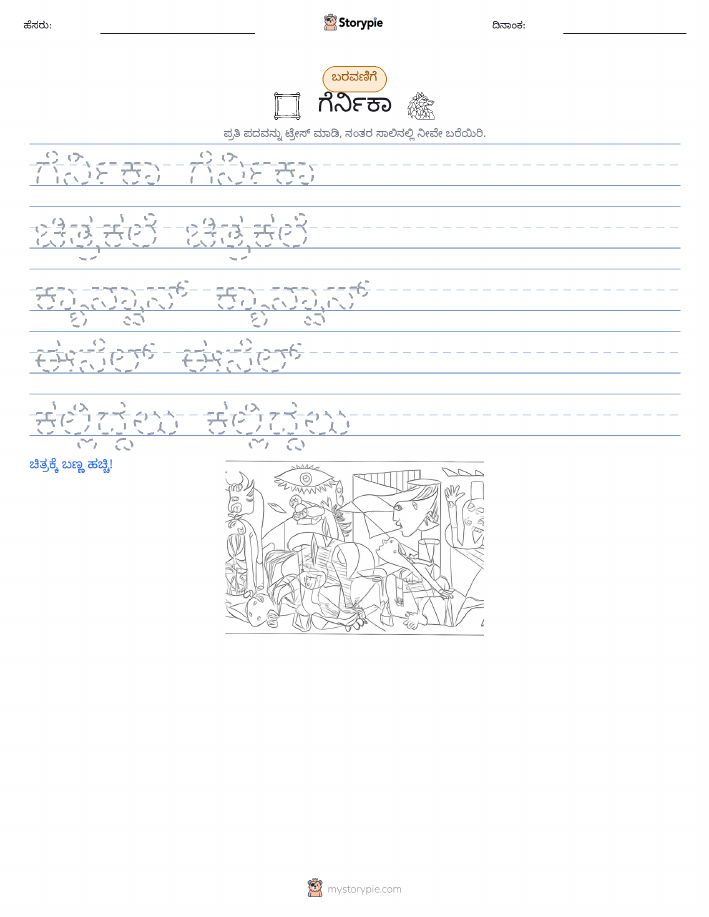 ಹೆಸರು:
Storypie
ದಿನಾಂಕ:
ಬರವಣಿಗೆ
ಗೆರ್ನಿಕಾ
ಪ್ರತಿ ಪದವನ್ನು ಟ್ರೇಸ್ ಮಾಡಿ, ನಂತರ ಸಾಲಿನಲ್ಲಿ ನೀವೇ ಬರೆಯಿರಿ.
ಗೆರ್ನಿಕಾ ಗೆರ್ನಿಕಾ
ಚಿತ್ರಕಲೆ ಚಿತ್ರಕಲೆ
ಕ್ಯಾನ್ವಾಸ್ ಕ್ಯಾನ್ವಾಸ್
ಈಸೆಲ್ ಈಸೆಲ್
ಕಲ್ಲಿದ್ದಲು ಕಲ್ಲಿದ್ದಲು
ಚಿತ್ರಕ್ಕೆ ಬಣ್ಣ ಹಚ್ಚಿ!
mystorypie.com